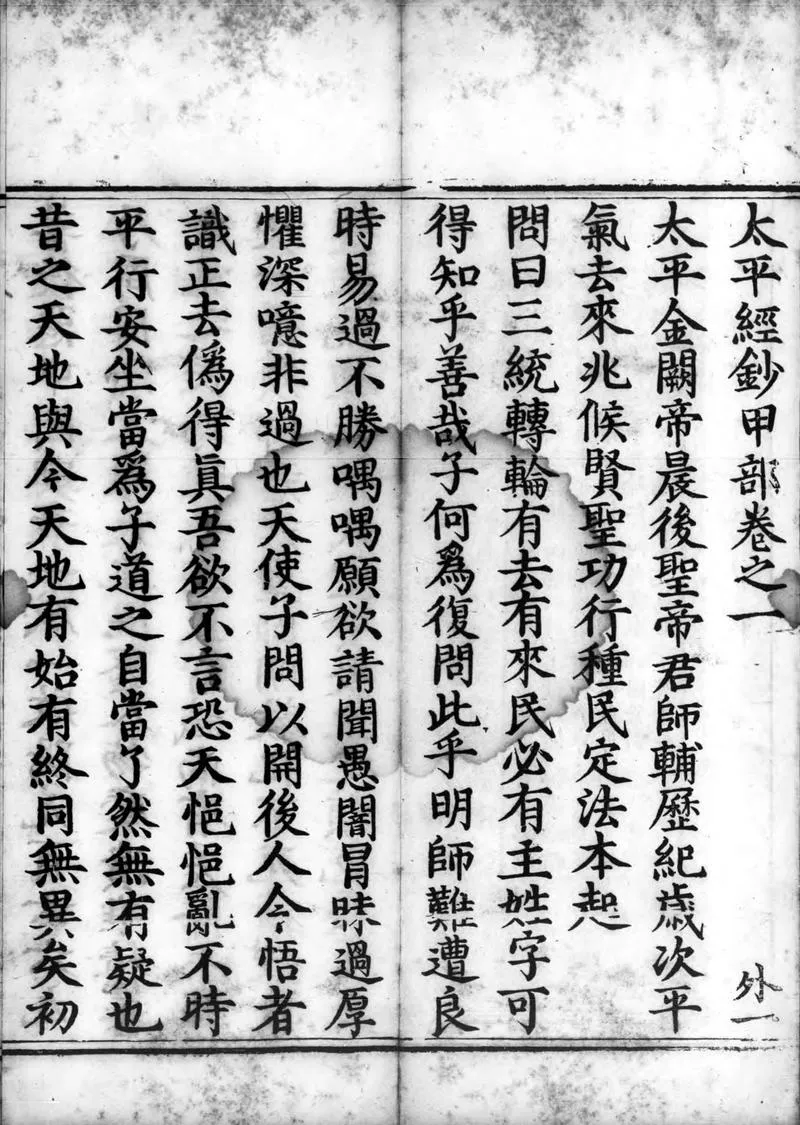 太平經鈔甲部卷之一
外一
太平金闕帝晨後聖帝君師輔歷紀歲次平
氣去來兆候賢聖功行種民定法本起
問曰三統轉輪有去有來民必有主姓字可
得知乎善哉子何爲復問此乎明師難遭良
時易過不勝喁喁願欲請聞愚闇冒昧過厚
懼深噫非過也天使子問以開後人今悟者
識正去僞得眞吾欲不言恐天悒悒亂不時
平行安坐當爲子道之自當了然無有疑也
昔之天地與今天地有始有終同無異矣初